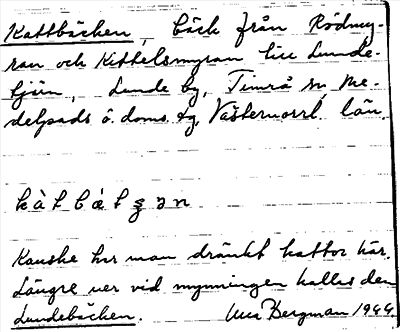 Kattbäcken, bäck från Rödmy-
ran och Kittelsmyran till Lunde-
tjärn, Lunde by, Timrå sn, Me-
delpads ö. doms. tg, Västernorrl. län.
kàtbækən
Kanske har man dränkt kattor här.
Längre ner vid mynningen kallas den
Lundebäcken. Bergman 1944.